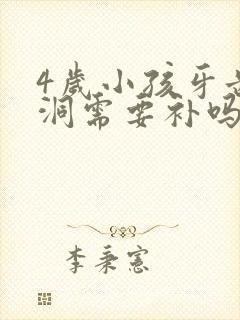 4岁小孩牙齿
洞需要补吗
李秉宪